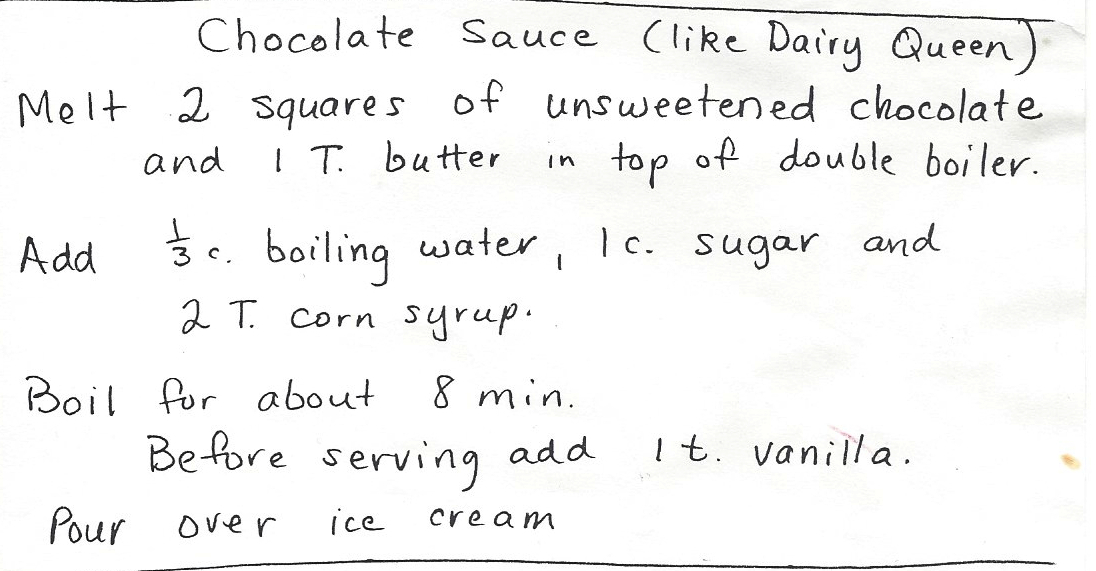 Chocolate Sauce (like Dairy Queen)
Melt 2 squares of unsweetened chocolate
and 1 T. butter in top of double boiler.
Add 1/3 c. boiling water, 1 c. sugar and
2 T. corn syrup.
Boil for about 8 min.
Before serving add 1 t. vanilla.
Pour over ice cream